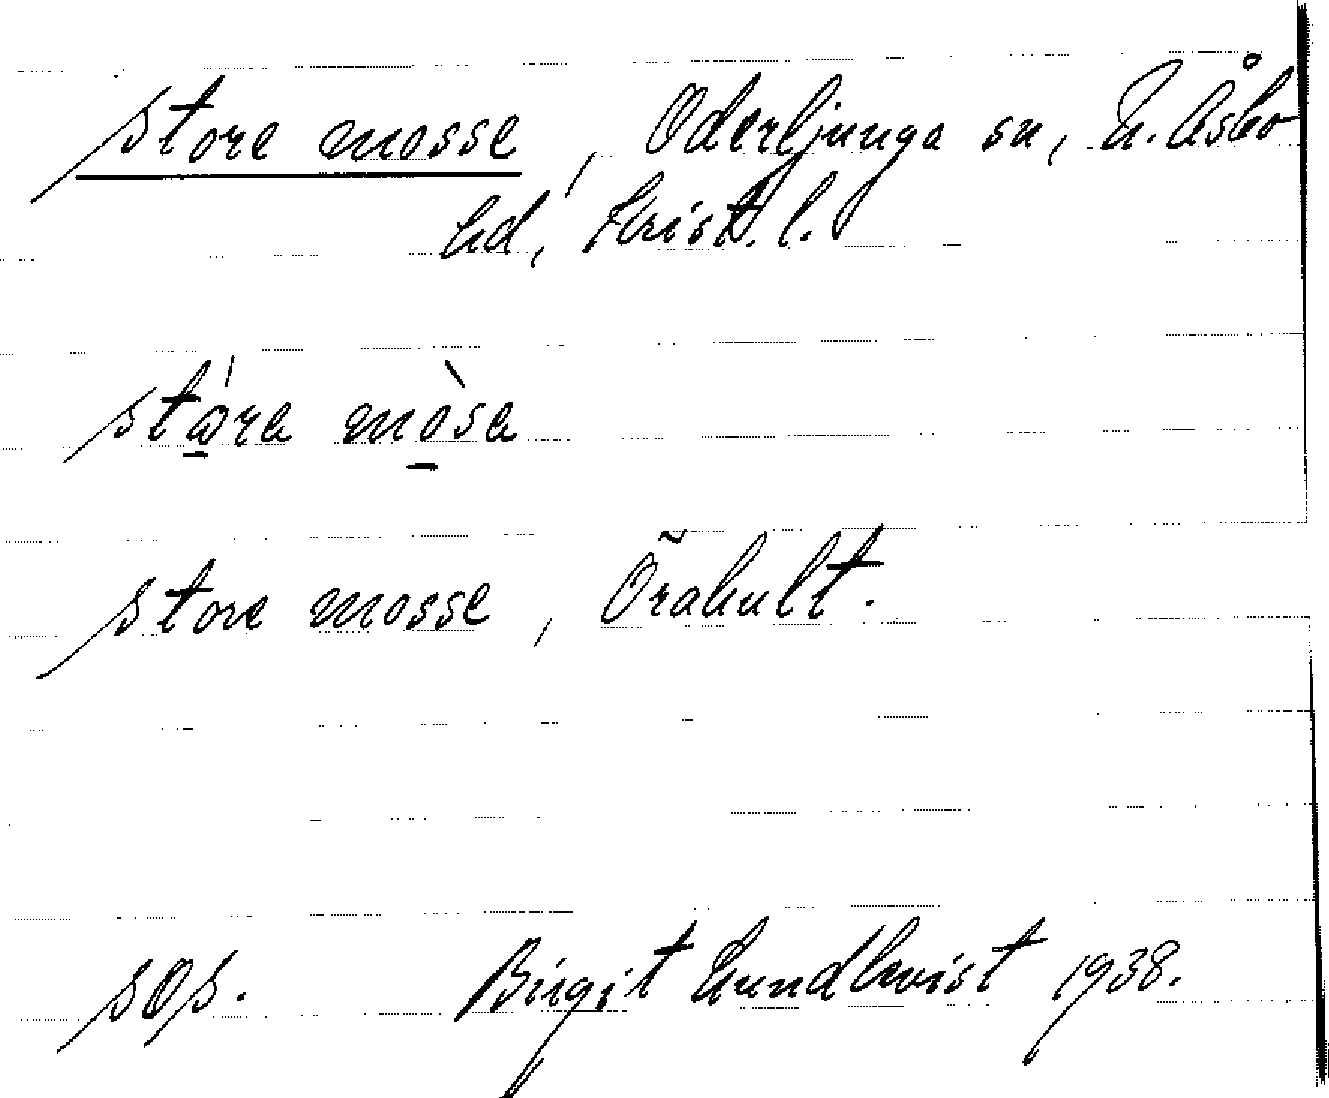 store mosse, Oderljunga sn, N. Åsbo
hd, Krist. l.
store mosse, Örahult.
sOs. Birgit Lundkvist 1938.